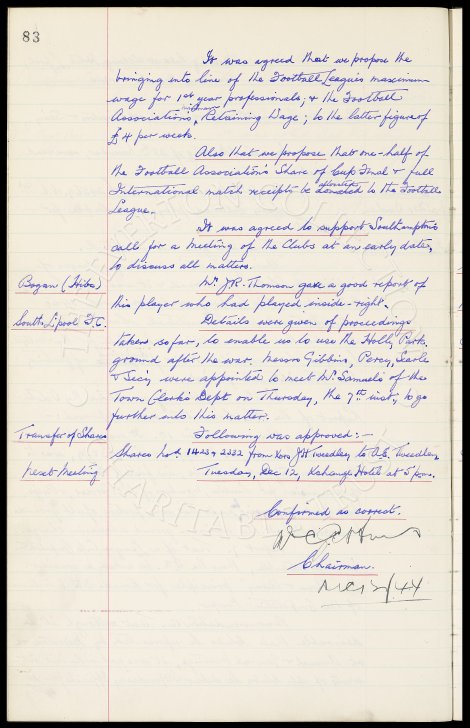 83
It was agreed that we propose the
bringing into line of the Football League's maximum
wage for 1st year professionals; & the Football
Associations, minimum Retaining Wage; to the latter figure of
£4 per week.
Also that we propose that one-half of
the Football Association's Share of Cup Final & full
International match receipts be donated to the Football
League.
It was agreed to support Southampton's
call for a meeting of the Clubs at an early date,
to discuss all matters.
Bogan (Hibs) Mr. J.R. Thomson gave a good report of
this player who had played inside-right.
South L'pool F.C. Details were given of proceedings
taken so far, to enable us to use the Holly Park,
ground after the war. Messrs Gibbins, Percy, Searle
& Sec'y were appointed to meet Mr. Samuels of the
Town Clerk's Dept on Thursday, the 7th inst, to go
further into this matter.
Transfer of Shares Following was approved:-
Shares nos. 1423 & 2332 from Exors J.H Tweedley, to A.E. Tweedley,
Next Meeting Tuesday, Dec 12, Exchange Hotel at 5 p.m.
Confirmed as correct.
Chairman.